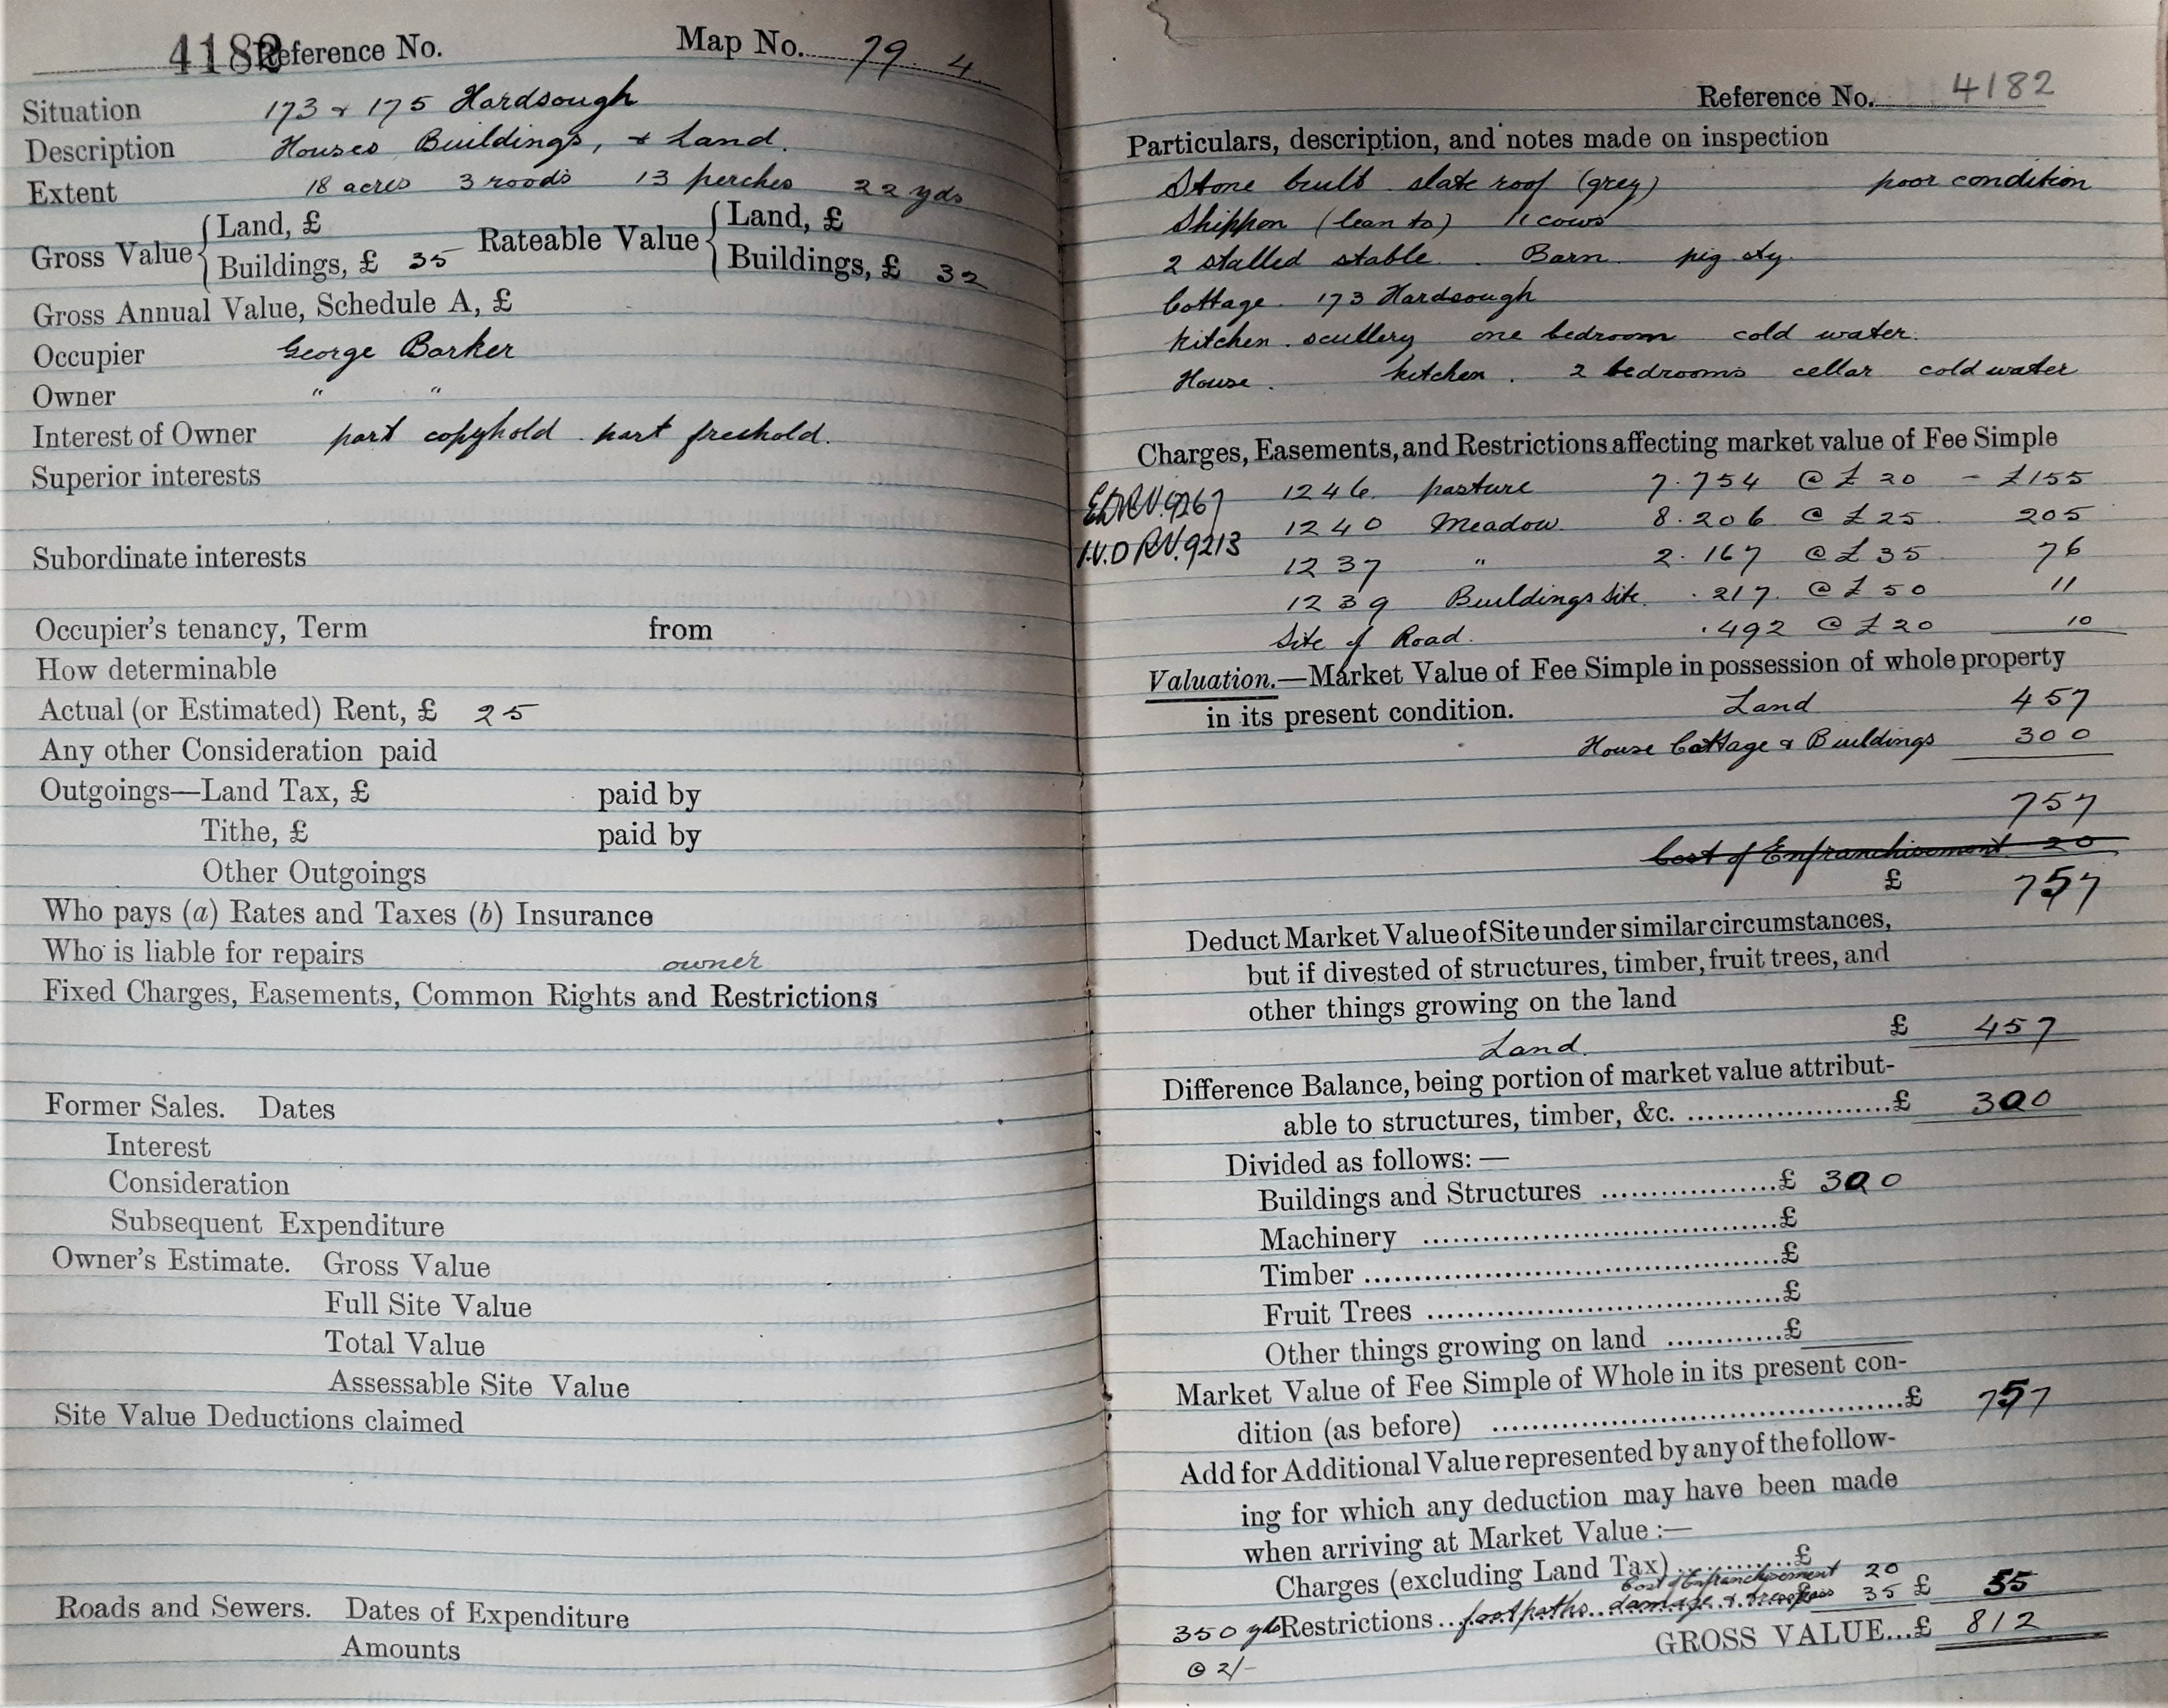 4182 Reference No. Map No. 79. 4
Situation 173 & 175 Hardsough
Description Houses Buildings, & Land.
Extent 18 acres 3 roods 13 perches 22 yds
Gross Value { Land, £ Rateable Value { Land, £
Buildings, £ 35 Buildings, £ 32
Gross Annual Value, Schedule A, £
Occupier George Barker
Owner " "
Interest of Owner part copyhold. part freehold.
Superior interests
Subordinate interests
Occupier's tenancy, Term from
How determinable
Actual (or Estimated) Rent, £ 25
Any other Consideration paid
Outgoings—Land Tax, £ paid by
Tithe, £ paid by
Other Outgoings
Who pays (a) Rates and Taxes (b) Insurance
Who is liable for repairs owner
Fixed Charges, Easements, Common Rights and Restrictions
Former Sales. Dates
Interest
Consideration
Subsequent Expenditure
Owner's Estimate. Gross Value
Full Site Value
Total Value
Assessable Site Value
Site Value Deductions claimed
Roads and Sewers. Dates of Expenditure
Amounts
Reference No. 4182
Particulars, description, and notes made on inspection
Stone built slate roof (grey) poor condition
Shippon (lean to) 11 cows
2 stalled stable. Barn. pig sty.
Cottage. 173 Hardsough
kitchen. scullery one bedroom cold water.
House. kitchen. 2 bedrooms cellar cold water
Charges, Easements, and Restrictions affecting market value of Fee Simple
1246. pasture 7.754 @ £20 - £155
1240 Meadow. 8.206 @ £25. 205
I.V.D RV.9213
1237 " 2.167 @ £35 76
1239 Buildings site. .217. @ £50 11
Site of Road. .492 @ £20 10
Valuation.—Market Value of Fee Simple in possession of whole property
in its present condition. Land 457
House Cottage & Buildings 300
757
Cost of Enfranchisement 20
£ 757
Deduct Market Value of Site under similar circumstances,
but if divested of structures, timber, fruit trees, and
other things growing on the land
Land. £ 457
Difference Balance, being portion of market value attribut-
able to structures, timber, &c. ......................£ 300
Divided as follows: —
Buildings and Structures ..................£ 300
Machinery ....................................£
Timber ............................................£
Fruit Trees .....................................£
Other things growing on land ............£
Market Value of Fee Simple of Whole in its present con-
dition (as before) ..........................................£ 757
Add for Additional Value represented by any of the follow-
ing for which any deduction may have been made
when arriving at Market Value :—
Charges (excluding Land Tax)............£
Cost of Enfranchisement 20
350 yds Restrictions...footpaths. damage & trespass 35 £ 55
GROSS VALUE...£ 812
@ 2/-